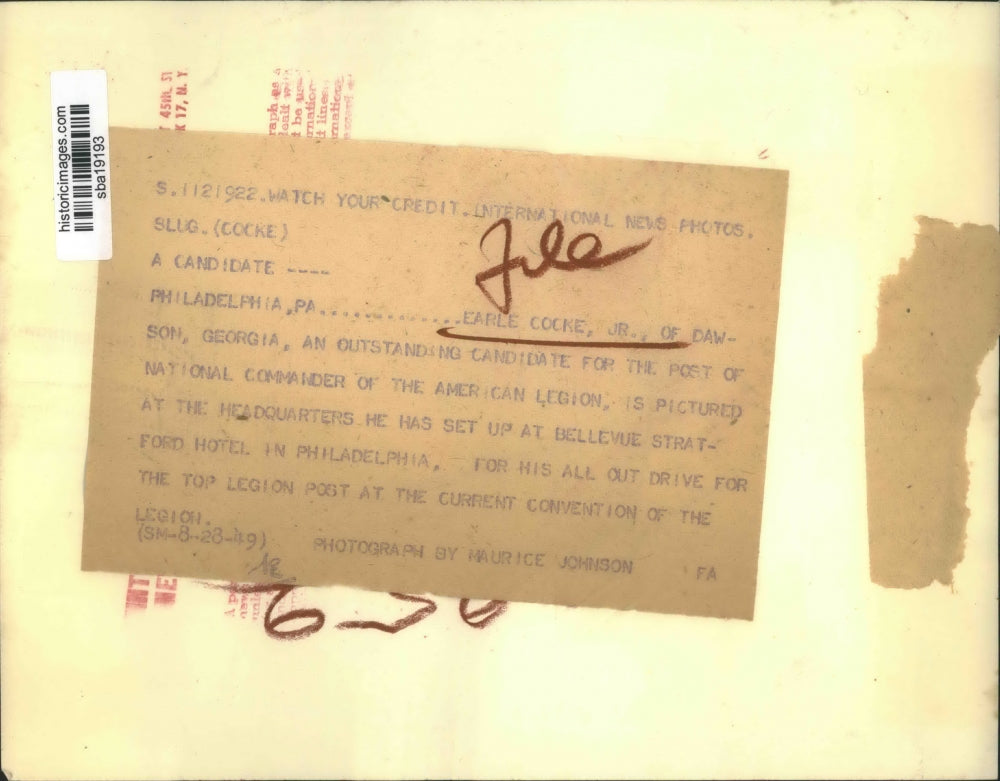 historicimages.com
sba19193
45th. ST
17, N. Y.
S.1121922.WATCH YOUR CREDIT.INTERNATIONAL NEWS PHOTOS.
SLUG.(COCKE)
A CANDIDATE ----
File
PHILADELPHIA,PA..............EARLE COCKE, JR., OF DAW-
SON, GEORGIA, AN OUTSTANDING CANDIDATE FOR THE POST OF
NATIONAL COMMANDER OF THE AMERICAN LEGION, IS PICTURED
AT THE HEADQUARTERS HE HAS SET UP AT BELLEVUE STRAT-
FORD HOTEL IN PHILADELPHIA, FOR HIS ALL OUT DRIVE FOR
THE TOP LEGION POST AT THE CURRENT CONVENTION OF THE
LEGION.
(SM-8-28-49) PHOTOGRAPH BY MAURICE JOHNSON FA